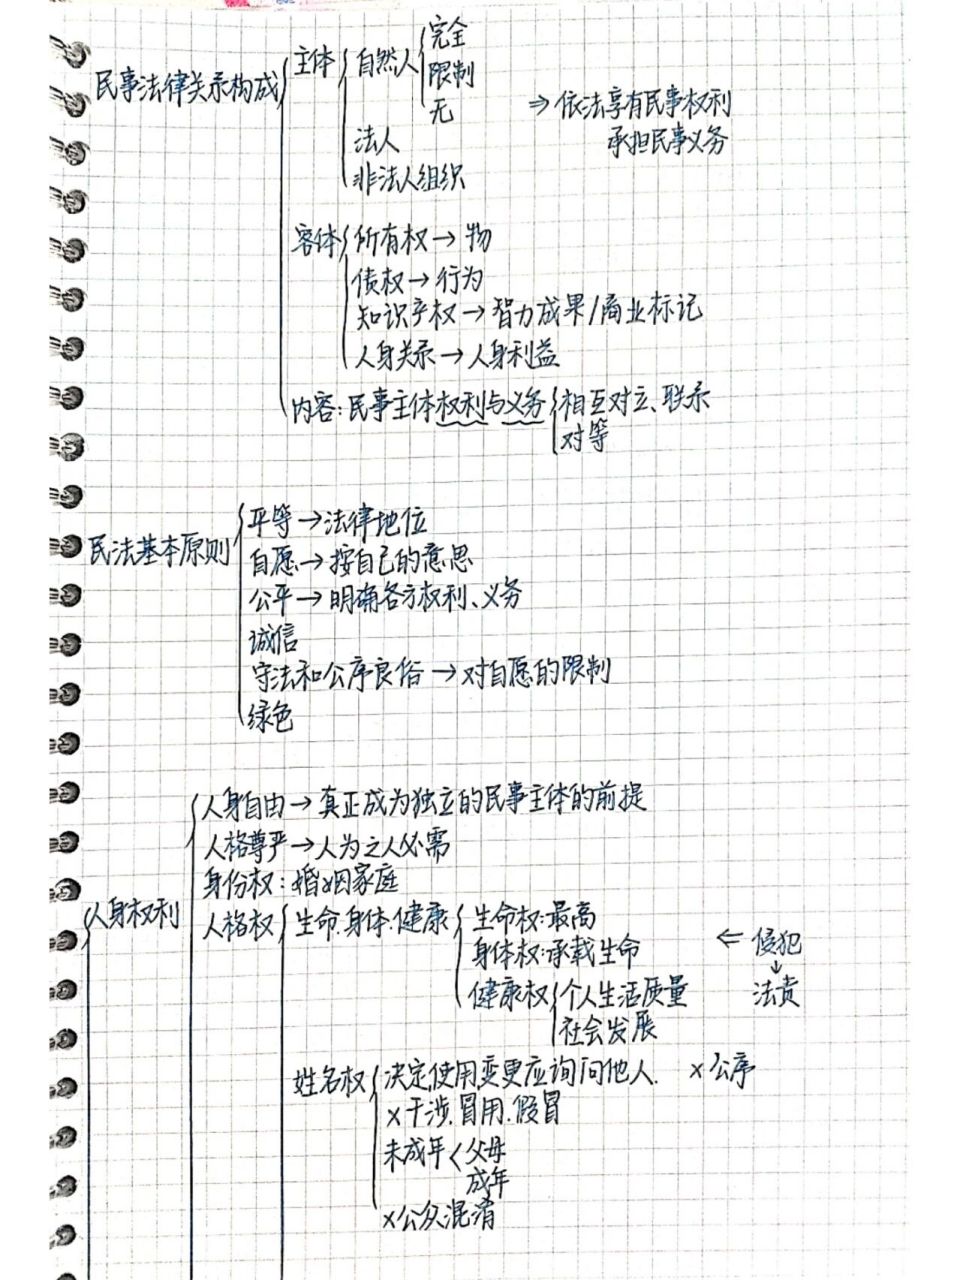 民事法律关系构成
主体
自然人
完全
限制
无
⇒ 依法享有民事权利
承担民事义务
法人
非法人组织
客体
所有权→物
债权→行为
知识产权→智力成果/商业标记
人身关系→人身利益
内容:民事主体权利与义务
相互对立、联系
对等
民法基本原则
平等→法律地位
自愿→按自己的意思
公平→明确各方权利、义务
诚信
守法和公序良俗→对自愿的限制
绿色
人身权利
人身自由→真正成为独立的民事主体的前提
人格尊严→人为之人必需
身份权:婚姻家庭
人格权
生命.身体.健康
生命权:最高
身体权:承载生命
健康权
个人生活质量
社会发展
⇐ 侵犯
↓
法责
姓名权
决定使用变更应询问他人. x公序
x干涉.冒用.假冒
未成年<父母
成年
x公众混淆